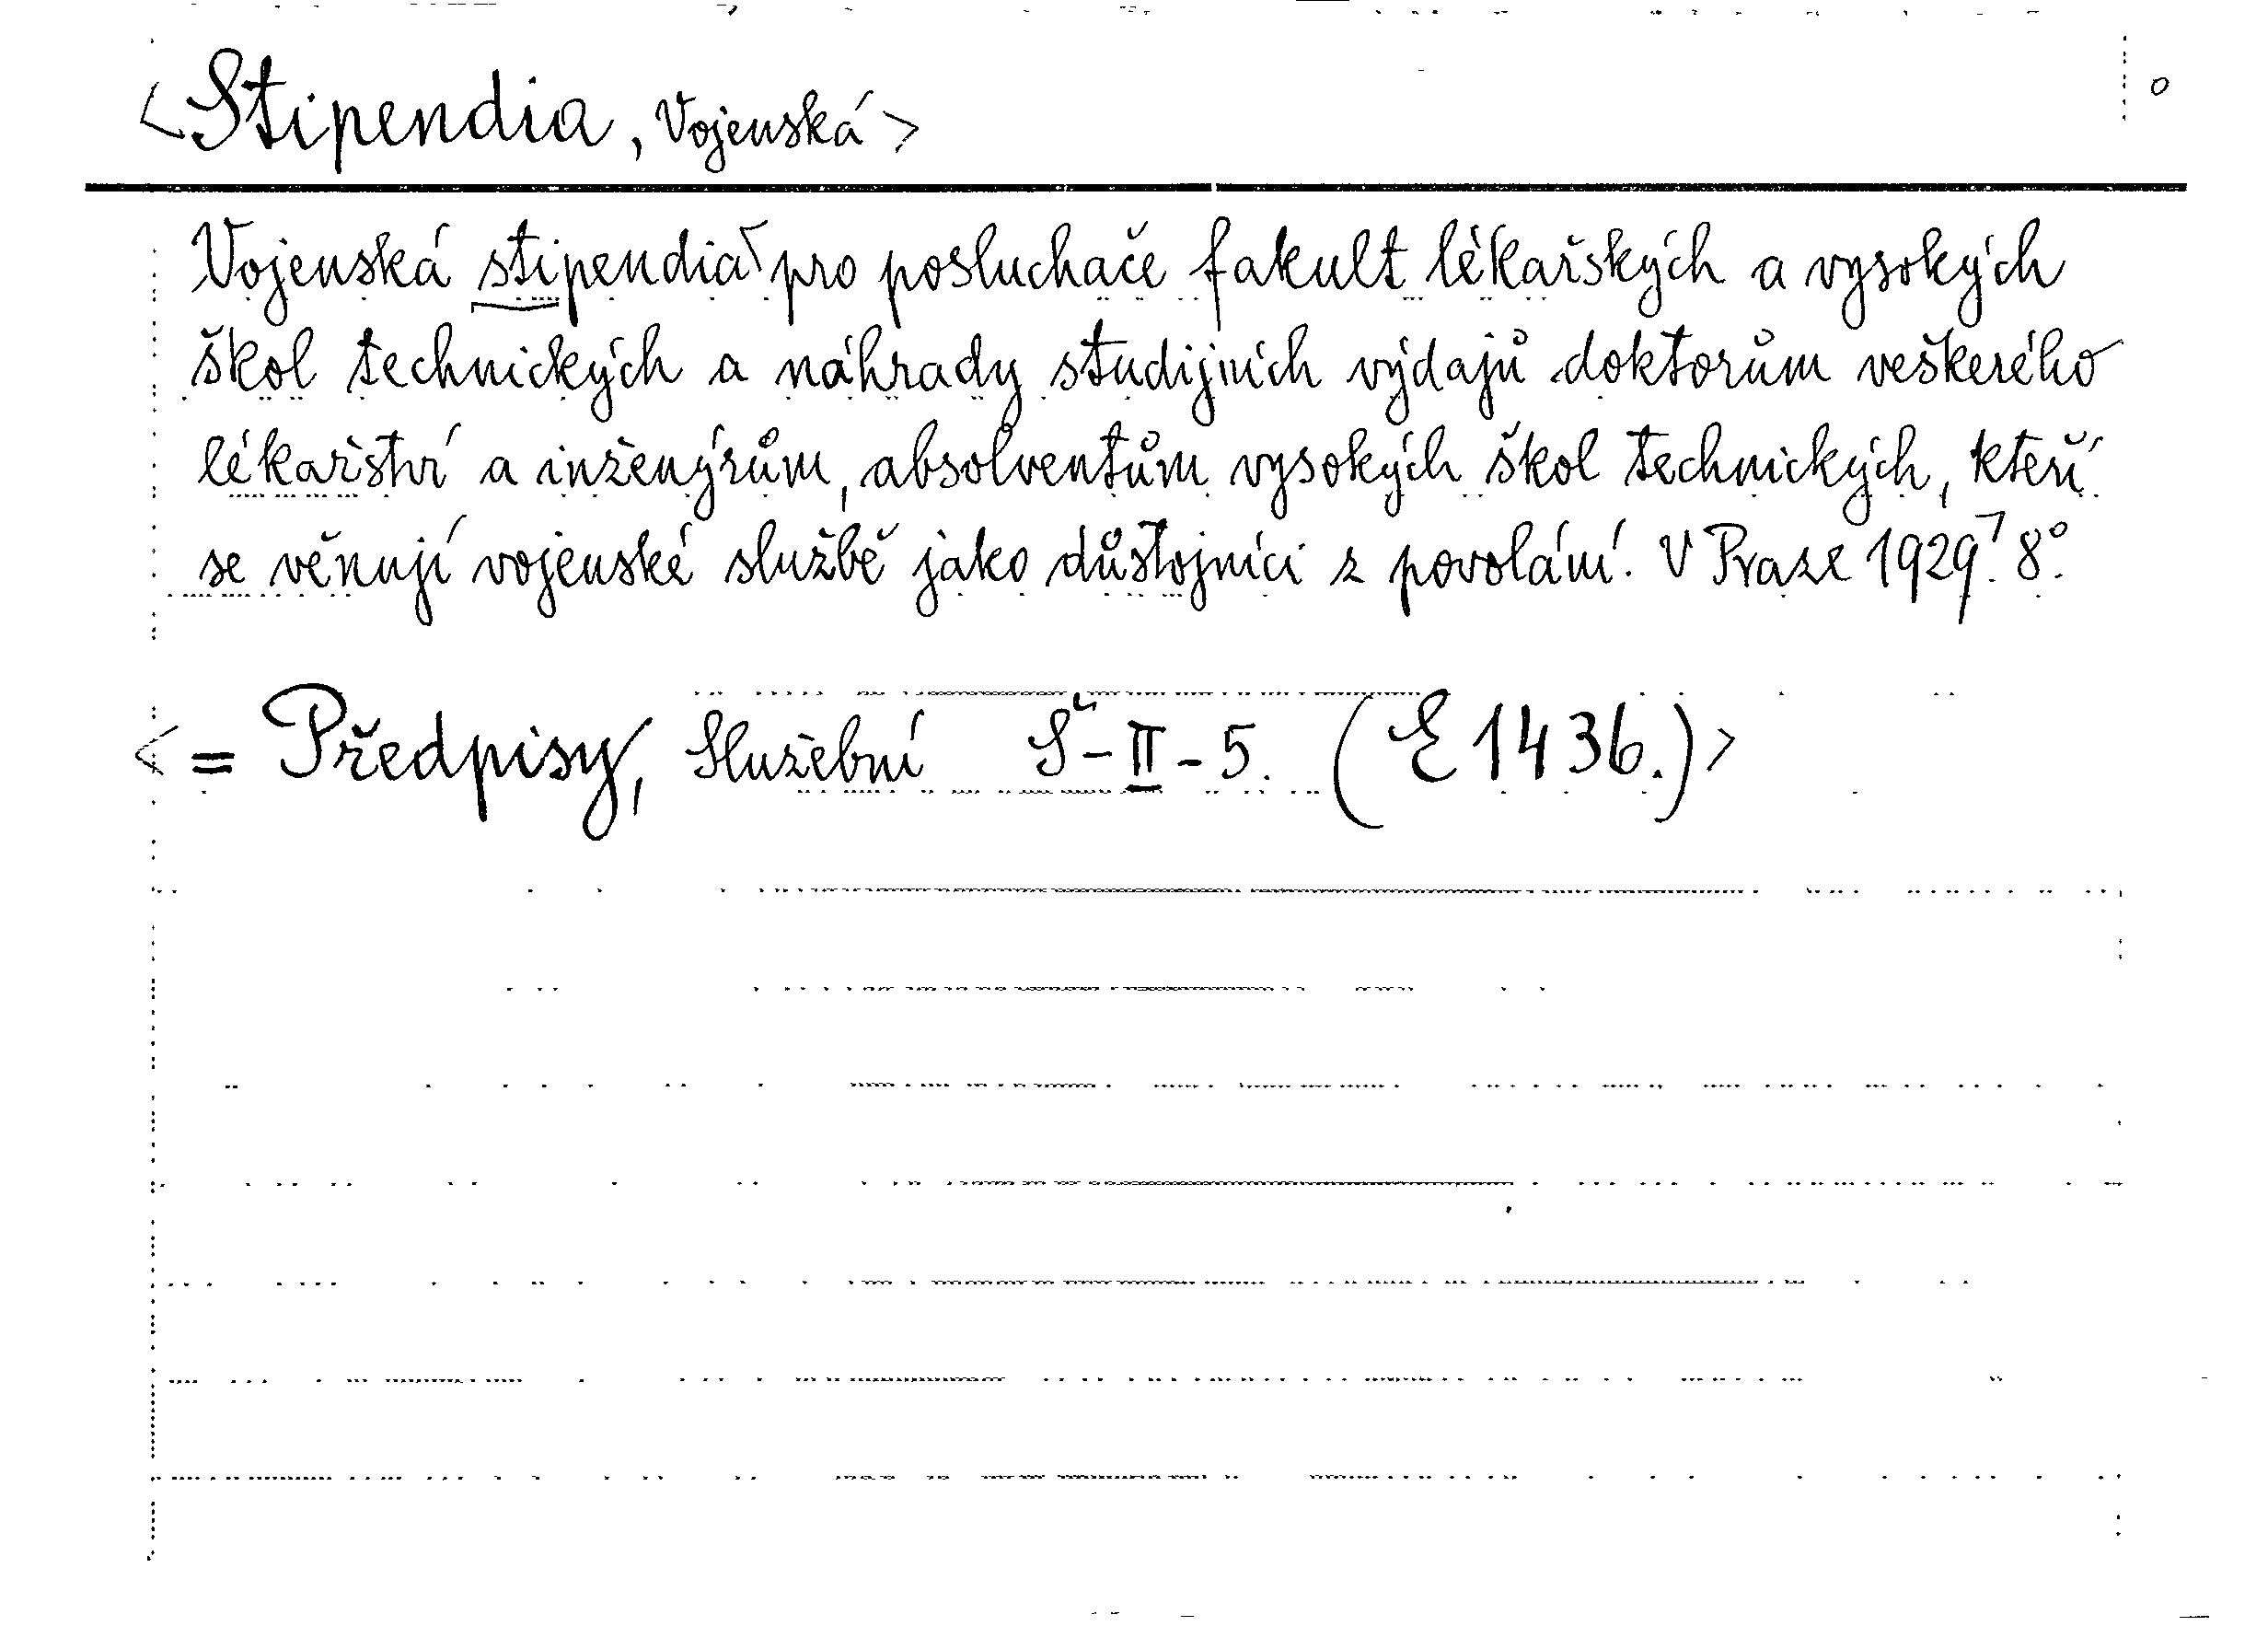 <Stipendia, Vojenská>
Vojenská stipendia pro posluchače fakult lékařských a vysokých
škol technických a náhrady studijních výdajů doktorům veškerého
lékařství a inženýrům, absolventům vysokých škol technických, kteří
se věnují vojenské službě jako důstojníci z povolání. V Praze 1929. 8°.
<= Předpisy, Služební Š-II-5. (E 1436.)>